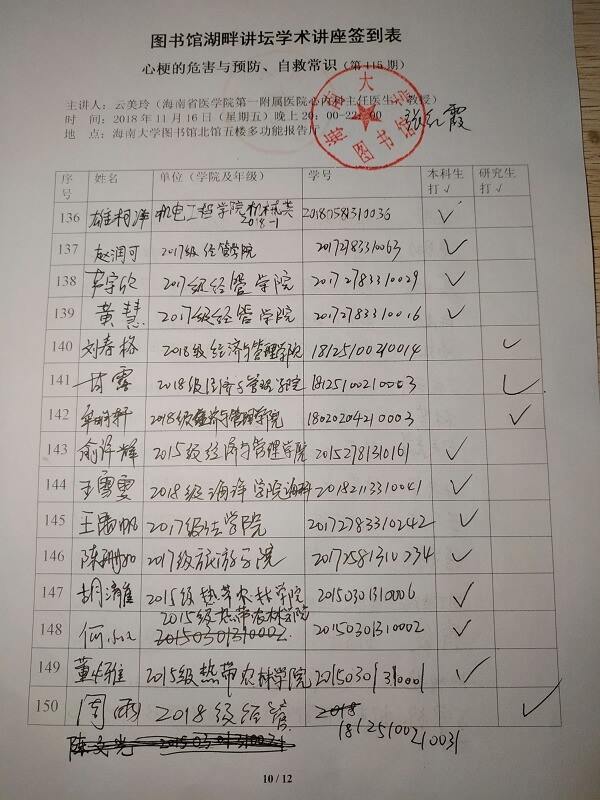 图书馆湖畔讲坛学术讲座签到表
心梗的危害与预防、自救常识（第115期）
主讲人：云美玲（海南省医学院第一附属医院心内科主任医生、教授）
时 间：2018年11月16日（星期五）晚上20：00-22：00
地 点：海南大学图书馆北馆五楼多功能报告厅
海南大学 图书馆
张红霞
序号 姓名 单位（学院及年级） 学号 本科生打√ 研究生打√
136 机电工程学院 2018-1 20187581310036 √
137 赵润可 2017级经管学院 20172783310063 √
138 2017级经管学院 20172783310029 √
139 黄慧 2017级经管学院 20172783310016 √
140 刘春格 2018级经济与管理学院 18125100210014 √
141 甘露 2018级经济与管理学院 18125100210003 √
142 2018级经济与管理学院 18020204210003 √
143 俞泽辉 2015级经济与管理学院 20152781310161 √
144 王雪雯 2018级海洋学院 20182113310041 √
145 2017级法学院 20172783310242 √
146 陈 2017级旅游学院 20172581310234 √
147 胡清雅 2015级热带农林学院 20150301310006 √
148 何 2015级热带农林学院 20150301310002 20150301310002 √
149 董 2015级热带农林学院 20150301310001 √
150 周雨 2018级经管 2018 18125100210031 √
陈文光 20150301310031
10 / 12